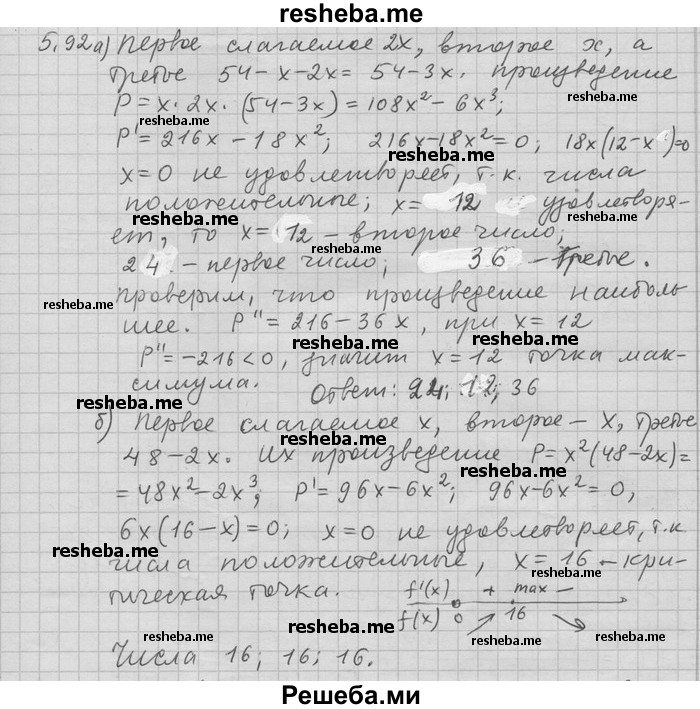 resheba.me
5.92 а) Первое слагаемое 2x, второе x, а
третье 54 - x - 2x = 54 - 3x. произведение
P = x · 2x · (54 - 3x) = 108x² - 6x³;
resheba.me resheba.me
P' = 216x - 18x²; 216x - 18x² = 0; 18x(12 - x)=0
x = 0 не удовлетворяет, т.к. числа
resheba.me
положительные; x = 12 удовлетворя-
resheba.me
ет, то x = 12 - второе число;
resheba.me
24 - первое число; 36 - третье.
resheba.me resheba.me
проверим, что произведение наиболь
шее. P'' = 216 - 36x, при x = 12
resheba.me
P'' = -216 < 0, значит x = 12 точка мак-
resheba.me
симума. Ответ: 24; 12; 36
resheba.me
б) Первое слагаемое x, второе - x, третье
resheba.me
48 - 2x. Их произведение P = x²(48 - 2x) =
resheba.me
= 48x² - 2x³; P' = 96x - 6x²; 96x - 6x² = 0,
resheba.me
6x(16 - x) = 0; x = 0 не удовлетворяет, т.к
resheba.me
числа положительные, x = 16 - кри-
resheba.me
тическая точка. f'(x) + max -
resheba.me f(x) 0 16
resheba.me resheba.me
Числа 16; 16; 16.
resheba.me
Решеба.ми